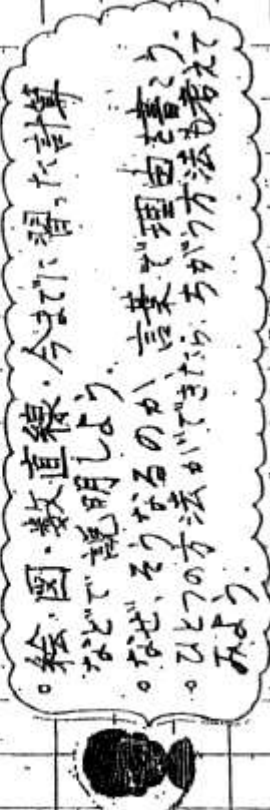 。絵・図・数直線・今までに習った計算
などで説明しよう。
。なぜ、そうなるのか、言葉で理由を書こう。
。ひとつの方法ができたら、ちがう方法も考えて
みよう。